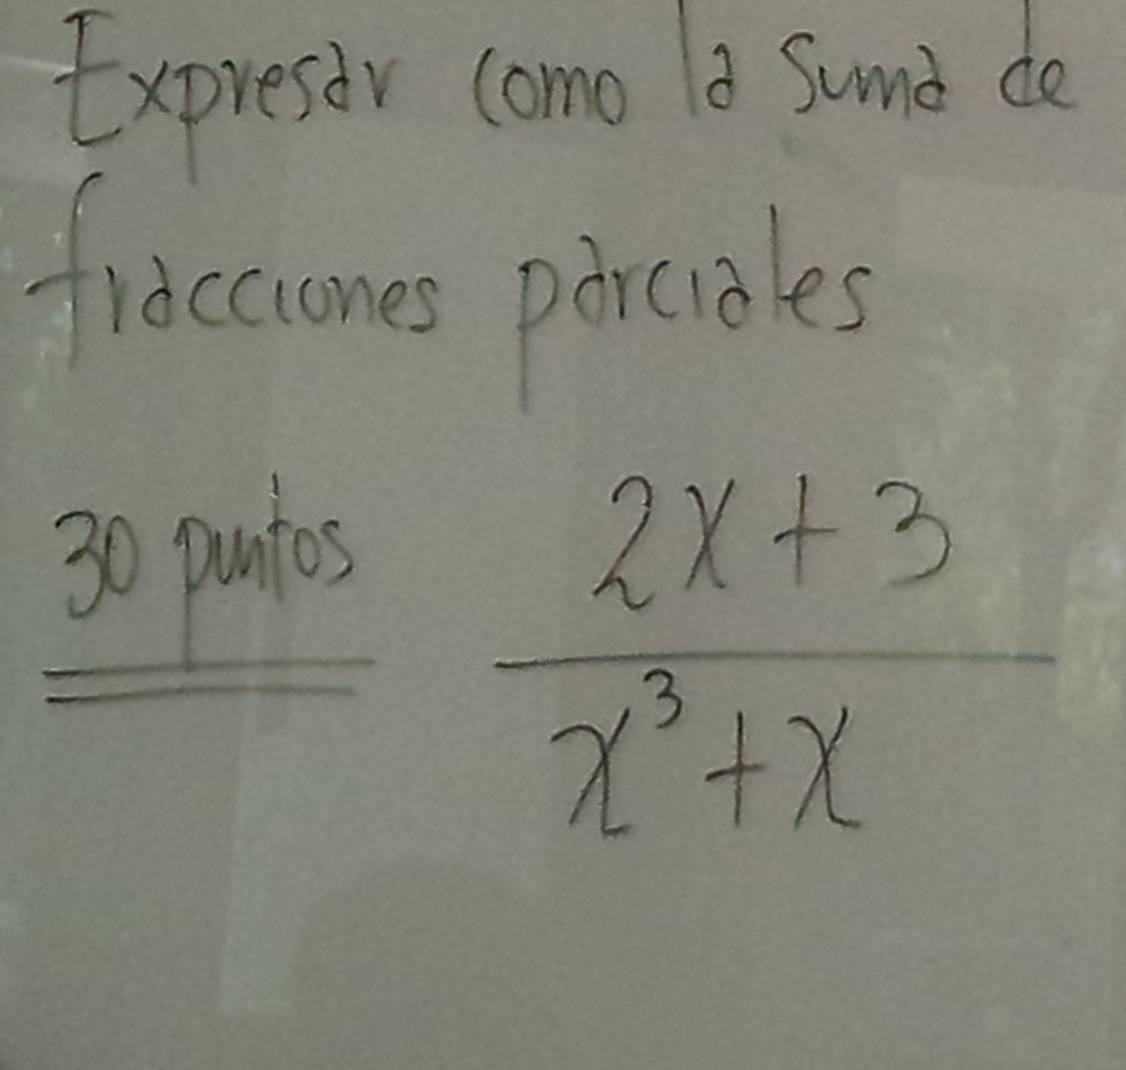 Expresar como la suma de
fracciones parciales
30 puntos
2x + 3
x³ + x